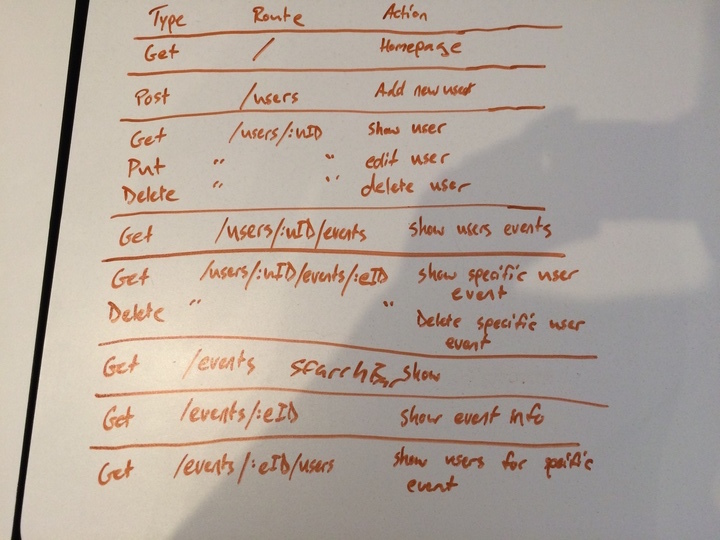 Type Route Action
Get / Homepage
Post /users Add new user
Get /users/:uID show user
Put " " edit user
Delete " " delete user
Get /users/:uID/events show users events
Get /users/:uID/events/:eID show specific user
event
Delete " " Delete specific user
event
Get /events searchBar show
Get /events/:eID show event info
Get /events/:eID/users show users for psific
event